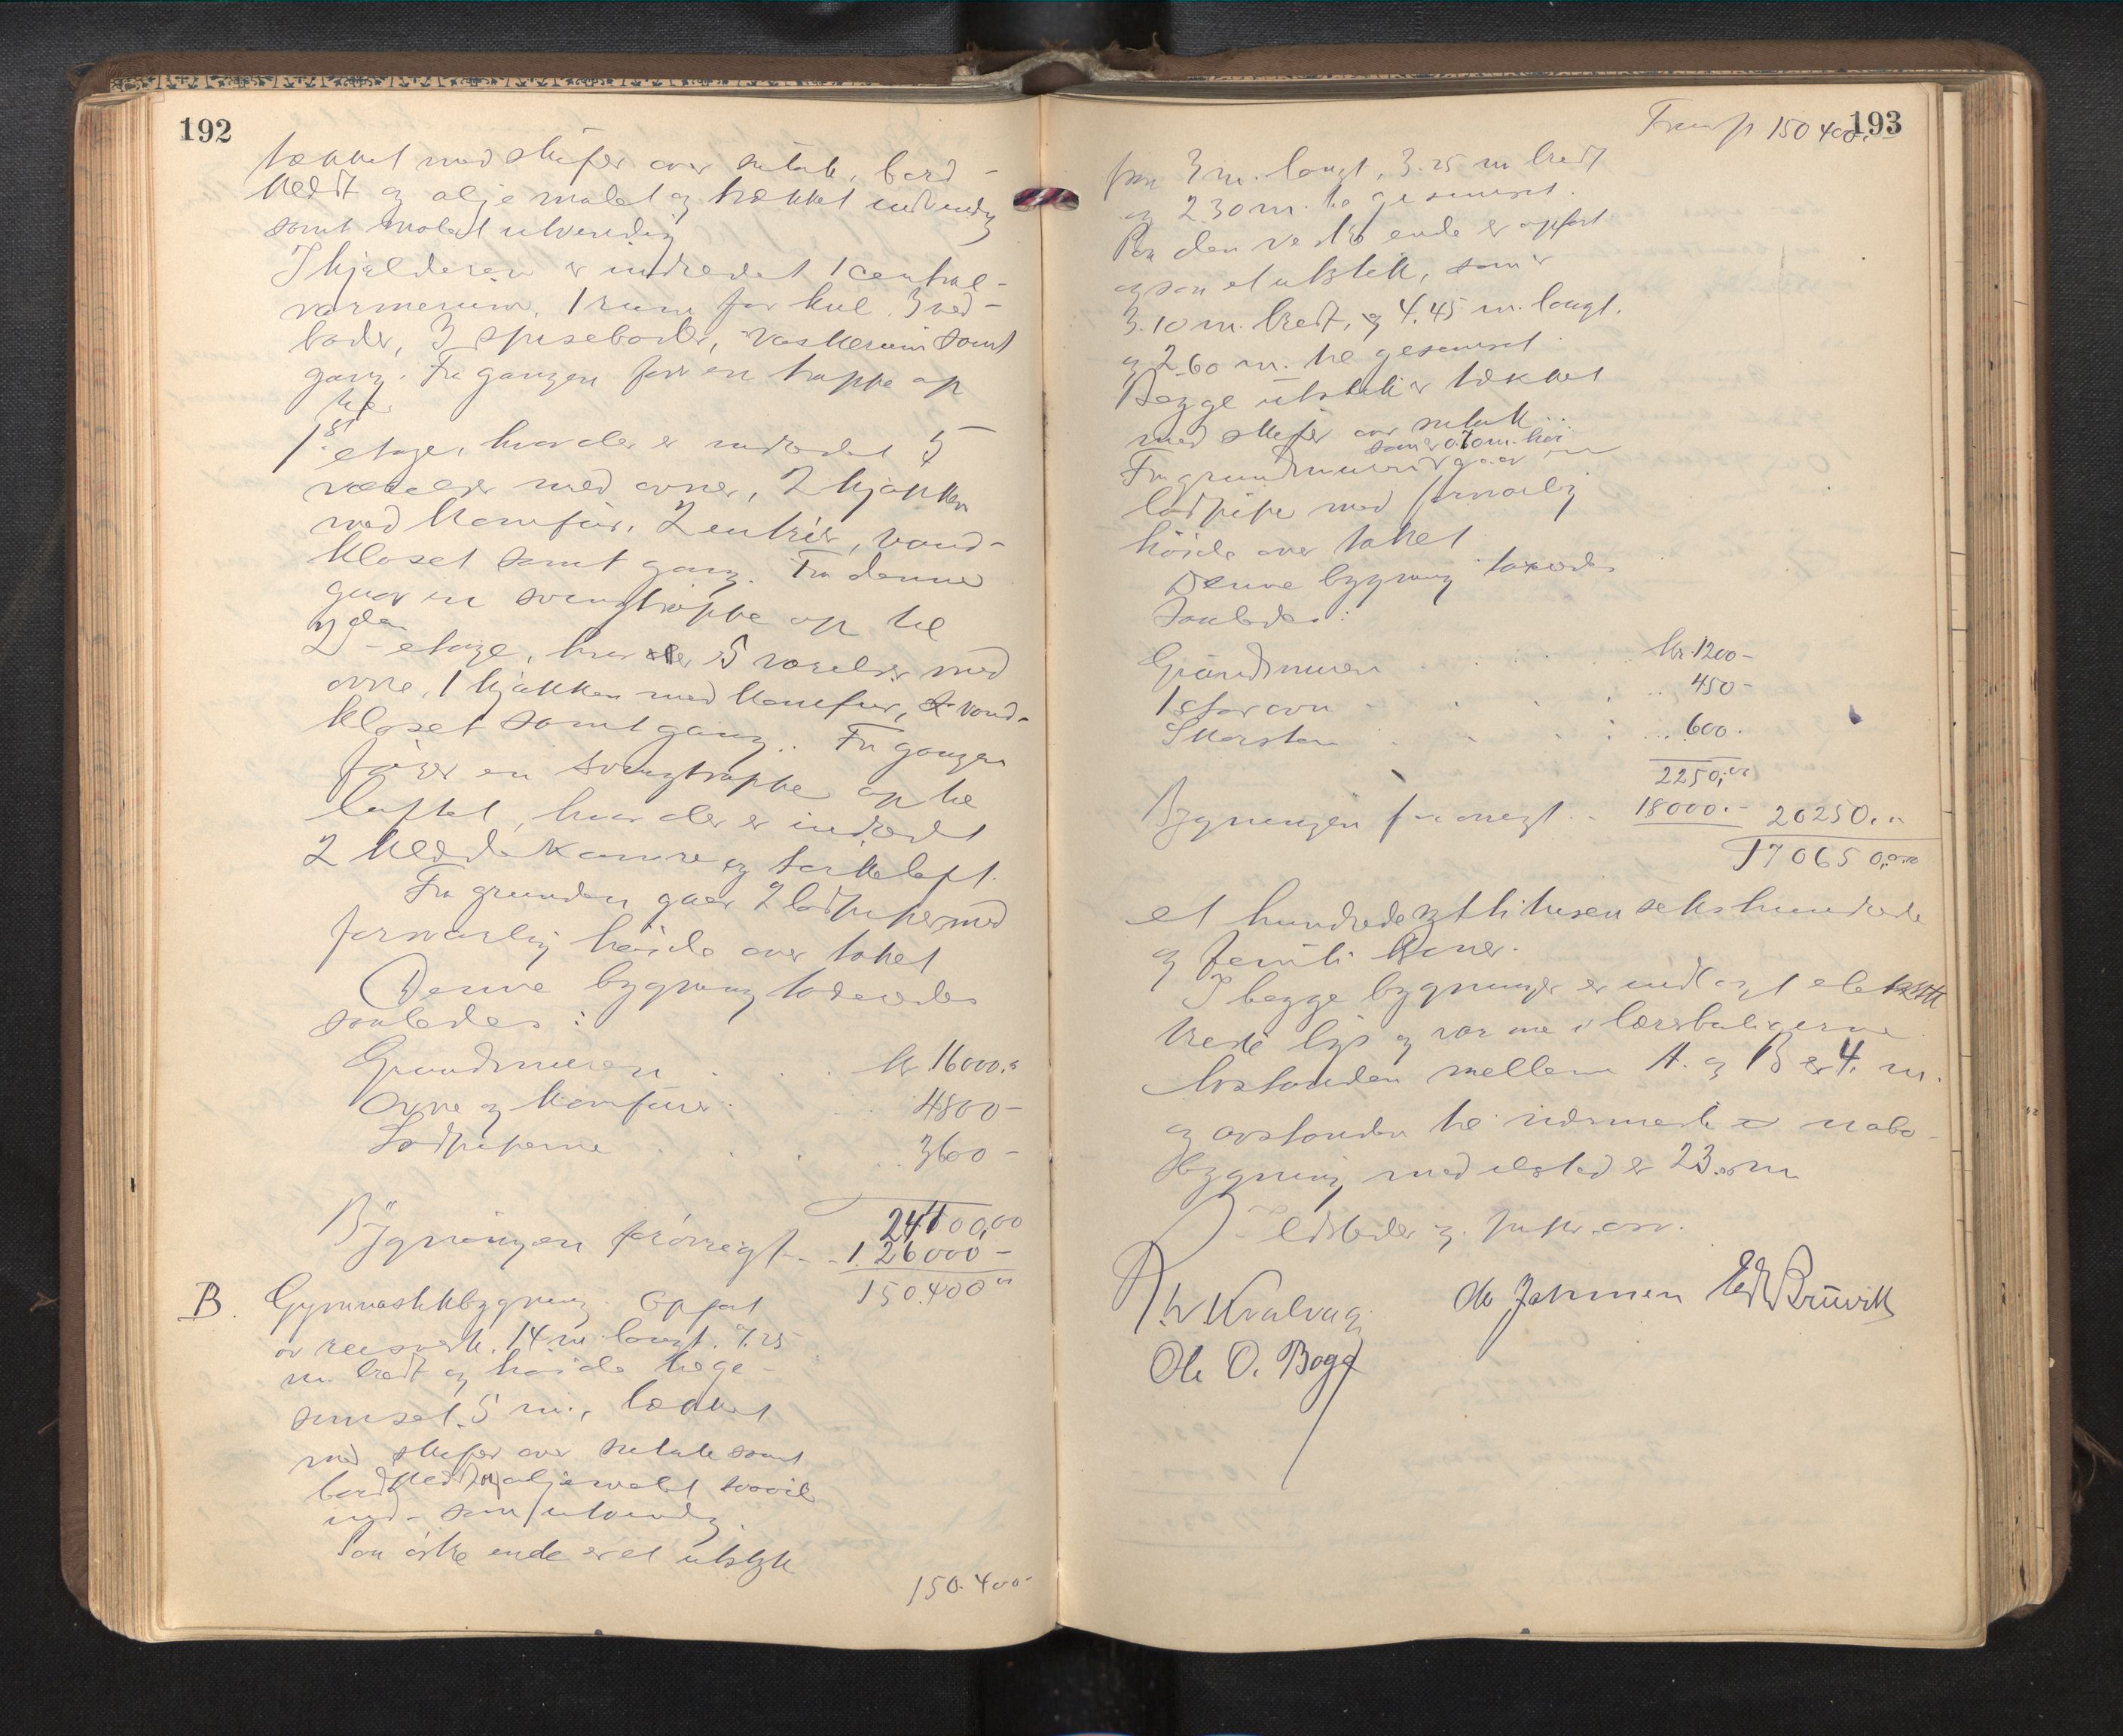 192
tækket med skifer over sutak, bord-
klædt og oljemalet og trækket indvendig
samt malet utvendig
I kjælderen er indredet 1 central-
varmerum, 1 rum for kul, 3 ved-
boder, 3 spiseboder, vaskerum samt
gang. Fra gangen fører en trappe op
til
1ste etage, hvor der er indredet 5
værelser med ovner, 2 kjøkken
med komfür, 2 entréer, vand-
kloset samt gang. Fra denne
gaar en svingtrappe op til
2den etage, hvor der 5 værelser med
ovne, 1 kjøkken med komfur, vand-
kloset samt gang. Fra gangen
fører en svingtrappe op til
loftet, hvor der er indredet
2 klædekamre og tørkeloft.
Fra grunden gaar 2 lodpiper med
forsvarlig høide over taket
Denne bygning taxeredes
saaledes:
Grundmuren . . . kr 16000.-
Ovne og komfurer . . . 4800-
Lodpiperne . . . 3600-
24400,00
Bygningen forøvrigt . . 126000-
150.400
B. Gymnastikbygning. Opført
av reisverk. 14 m langt. 7.25
m bredt og høide til ge-
simset 5 m., tækket
med skifer over sutak samt
bordklædt og oljemalt saavel
ind- som utvendig.
Paa østre ende er et utstyk
150.400-
193
Transp 150 400.-
paa 3 m. langt, 3.25 m bredt
og 2.30 m. til gesimset.
Paa den vestre ende er opført
ogsaa et utstik, som er
3.10 m. bredt, og 4.45 m. langt.
og 2.60 m. til gesimset.
Begge utstik er tækket
med skifer over sutak.
som er 0.70 m. høi
Fra grundmuren gaar en
lodpipe med forsvarlig
høide over taket
Denne bygning taxeredes
saaledes:
Grundmuren . . . kr. 1200-
1 stor ovn . . . 450-
Skorsten . . . 600.
2250,00
Bygningen forøvrigt . . 18000.- 20250.-
170650,00
et hundrede og sytti tusen seks hundrede
og femti kroner.
I begge bygninger er indlagt elek
trisk lys og varme i lærerboligerne
Avstanden mellem A. og B er 4. m.
og avstanden til nærmeste nabo-
bygning med ildsted er 23 m
Ildsteder og piper orv.
Ole Johnsen
Ole O. Bogg